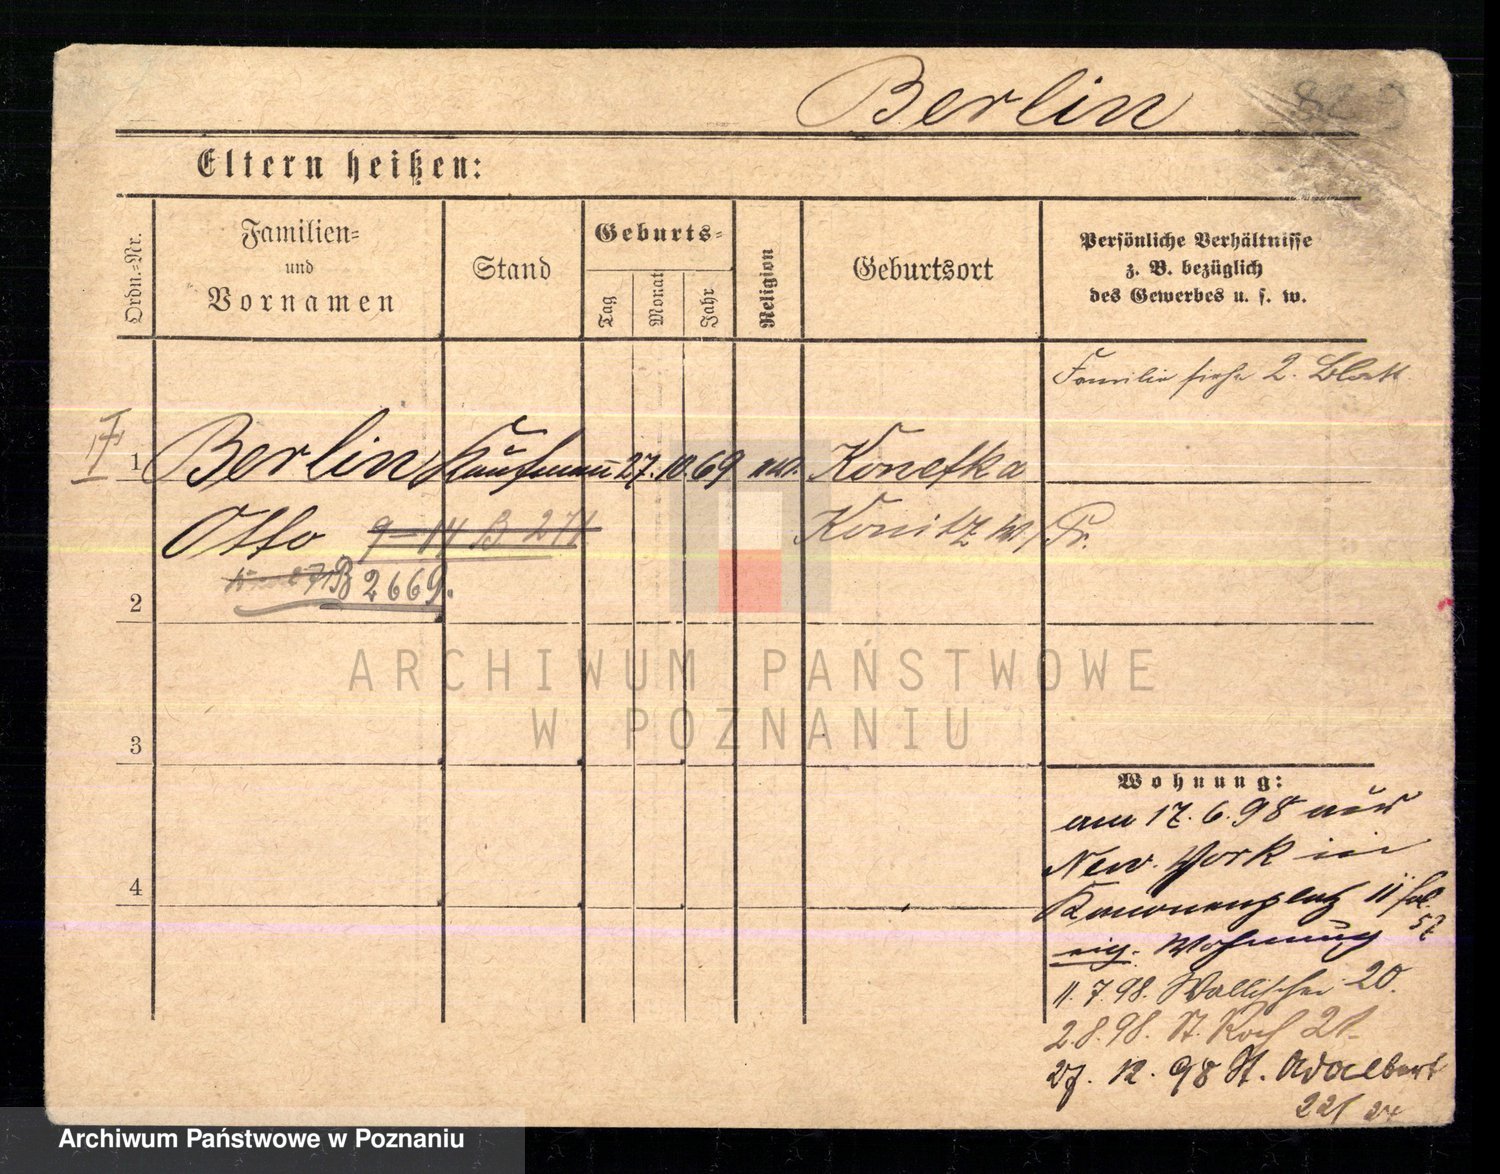 Berlin
Eltern heißen:
Ordn.-Nr.
Familien-
und
Vornamen
Stand
Geburts-
Tag
Monat
Jahr
Religion
Geburtsort
Persönliche Verhältnisse
z. B. bezüglich
des Gewerbes u. s. w.
Familie siehe 2. Blatt
1 Berlin Kaufmann 27. 10. 69 Konefka
Otto 9-14 B. 271 Konitz W/Pr.
B 2669.
2
3
4
Wohnung:
am 17. 6. 98 aus
New. York in
Kanonenplatz 11 fol.
57
eig. Wohnung
11. 7. 98. Wallischei 20.
2. 8. 98. St. 21.
27. 12. 98 St. Adalbert
ARCHIWUM PAŃSTWOWE
W POZNANIU
Archiwum Państwowe w Poznaniu